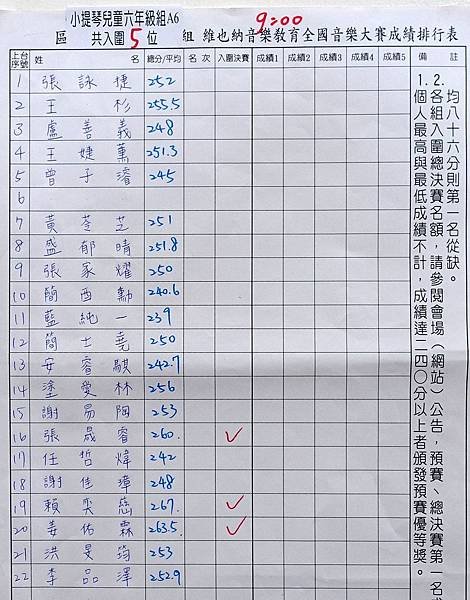 小提琴兒童六年級組A6 9:00
區 共入圍5位 組 維也納音樂教育全國音樂大賽成績排行表
上台序號 姓名 總分/平均 名次 入圍決賽 成績1 成績2 成績3 成績4 成績5 備註
1 張詠捷 252
2 王杉 255.5
3 盧善義 248
4 王婕薰 251.3
5 曾子濬 245
6
7 黃苓芝 251
8 盛郁晴 251.8
9 張家燿 250
10 簡酉勳 240.6
11 藍純一 239
12 簡士堯 250
13 安睿騏 242.7
14 塗愛林 256
15 謝易陶 253
16 張晟睿 260. ✓
17 任哲煒 242
18 謝佳璋 248
19 賴奕慈 267. ✓
20 姜佑霖 263.5. ✓
21 洪旻筠 253
22 李品澤 252.9
1.個人最高與最低成績不計，成績達二四○分以上者頒發預賽優等獎。
2.各組入圍總決賽名額，請參閱會場（網站）公告，預賽、總決賽第一名
均八十六分則第一名從缺。